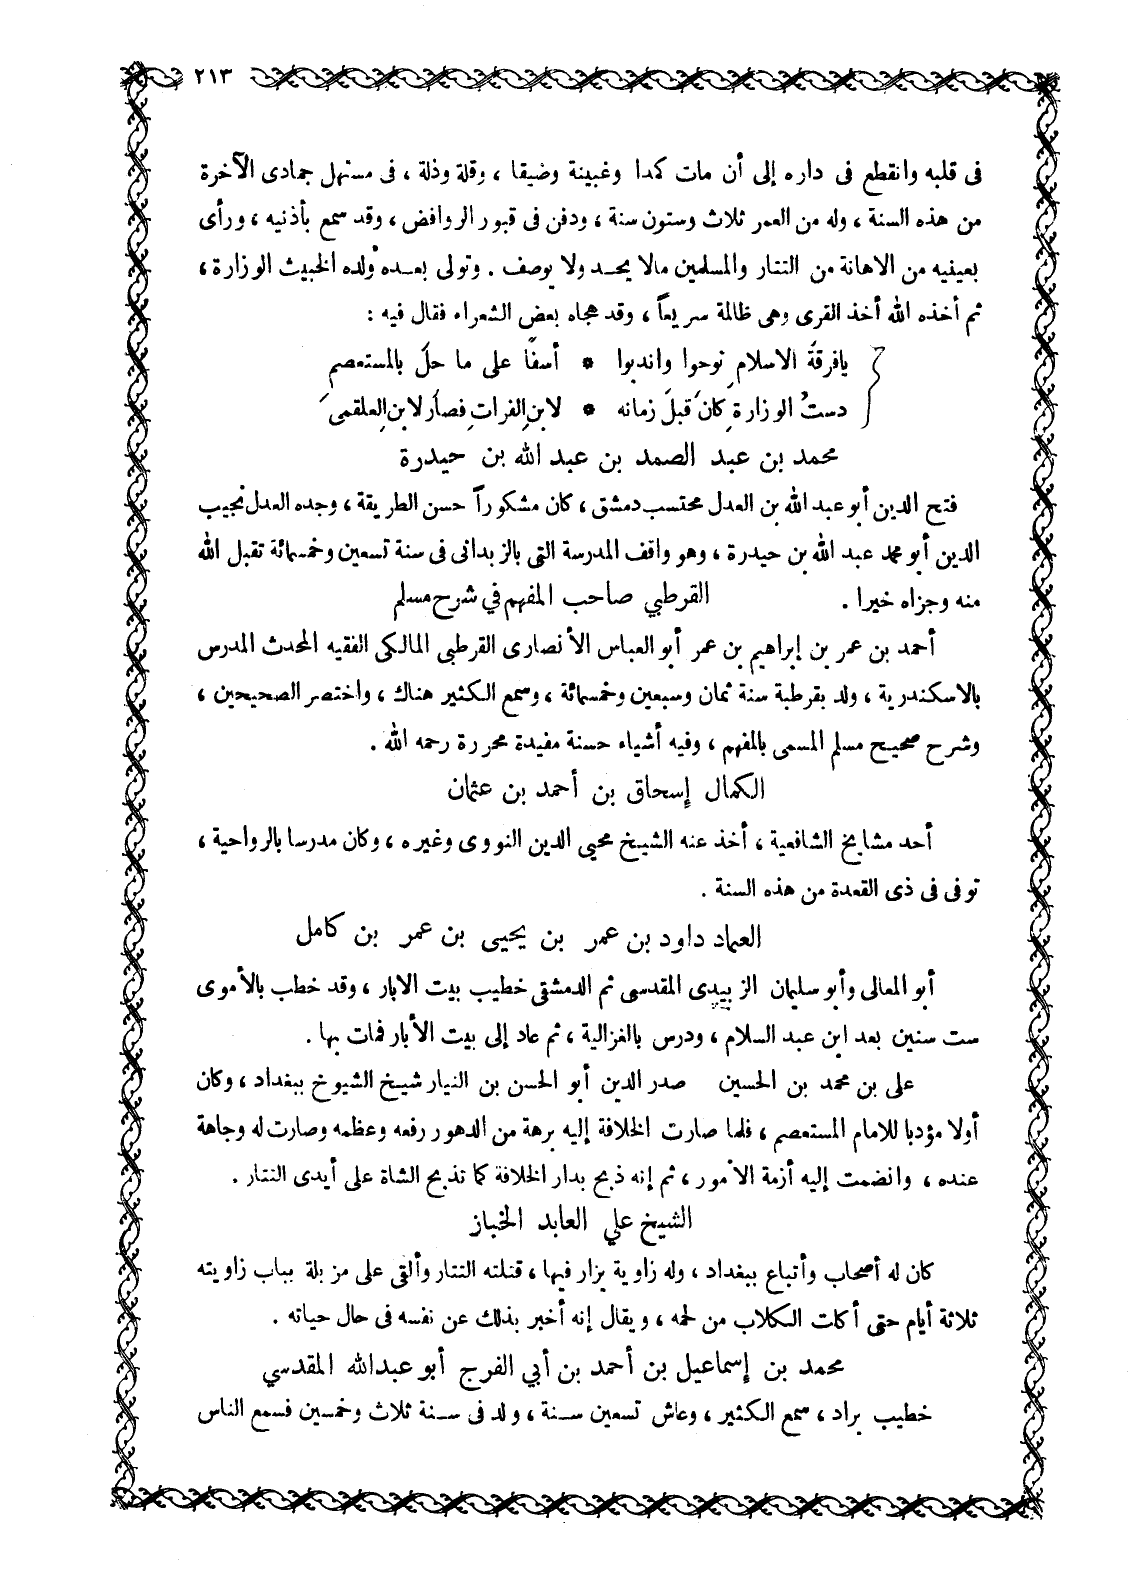 ٢١٣
فى قلبه وانقطع فى داره إلى أن مات كمدا وغبينة وضيقا ، وقلة وذلة ، فى مستهل جمادى الآخرة
من هذه السنة ، وله من العمر ثلاث وستون سنة ، ودفن فى قبور الروافض ، وقد سمع بأذنيه ، ورأى
بعينيه من الاهانة من التتار والمسلمين مالا يحد ولا يوصف . وتولى بعده ولده الخبيث الوزارة ،
ثم أخذه الله أخذ القرى وهى ظالمة سريعاً ، وقد هجاه بعض الشعراء فقال فيه :
يافرقةَ الاسلامِ نوحوا واندبوا * أسفًا على ما حلَّ بالمستعصمِ
دستُ الوزارةِ كانَ قبلَ زمانه * لابنِ الفراتِ فصارَ لابنِ العلقمى
محمد بن عبد الصمد بن عبد الله بن حيدرة
فتح الدين أبو عبد الله بن العدل محتسب دمشق ، كان مشكوراً حسن الطريقة ، وجده العدل نجيب
الدين أبو محمد عبد الله بن حيدرة ، وهو واقف المدرسة التى بالزبدانى فى سنة تسعين وخمسمائة تقبل الله
منه وجزاه خيرا . القرطبي صاحب المفهم في شرح مسلم
أحمد بن عمر بن إبراهيم بن عمر أبو العباس الأنصارى القرطبى المالكى الفقيه المحدث المدرس
بالاسكندرية ، ولد بقرطبة سنة ثمان وسبعين وخمسمائة ، وسمع الكثير هناك ، واختصر الصحيحين ،
وشرح صحيح مسلم المسمى بالمفهم ، وفيه أشياء حسنة مفيدة محررة رحمه الله .
الكمال إسحاق بن أحمد بن عثمان
أحد مشايخ الشافعية ، أخذ عنه الشيخ محيى الدين النووى وغيره ، وكان مدرسا بالرواحية ،
توفى فى ذى القعدة من هذه السنة .
العماد داود بن عمر بن يحيى بن عمر بن كامل
أبو المعالى وأبو سليمان الزبيدى المقدسى ثم الدمشقى خطيب بيت الابار ، وقد خطب بالأموى
ست سنين بعد ابن عبد السلام ، ودرس بالغزالية ، ثم عاد إلى بيت الأبار فمات بها .
على بن محمد بن الحسين صدر الدين أبو الحسن بن النيار شيخ الشيوخ ببغداد ، وكان
أولا مؤدبا للامام المستعصم ، فلما صارت الخلافة إليه برهة من الدهور رفعه وعظمه وصارت له وجاهة
عنده ، وانضمت إليه أزمة الأمور ، ثم إنه ذبح بدار الخلافة كما تذبح الشاة على أيدى التتار .
الشيخ علي العابد الخباز
كان له أصحاب وأتباع ببغداد ، وله زاوية يزار فيها ، قتلته التتار وألقى على مزبلة بباب زاويته
ثلاثة أيام حتى أكلت الكلاب من لحمه ، ويقال إنه أخبر بذلك عن نفسه فى حال حياته .
محمد بن إسماعيل بن أحمد بن أبي الفرج أبو عبدالله المقدسي
خطيب براد ، سمع الكثير ، وعاش تسعين سنة ، ولد فى سنة ثلاث وخمسين فسمع الناس